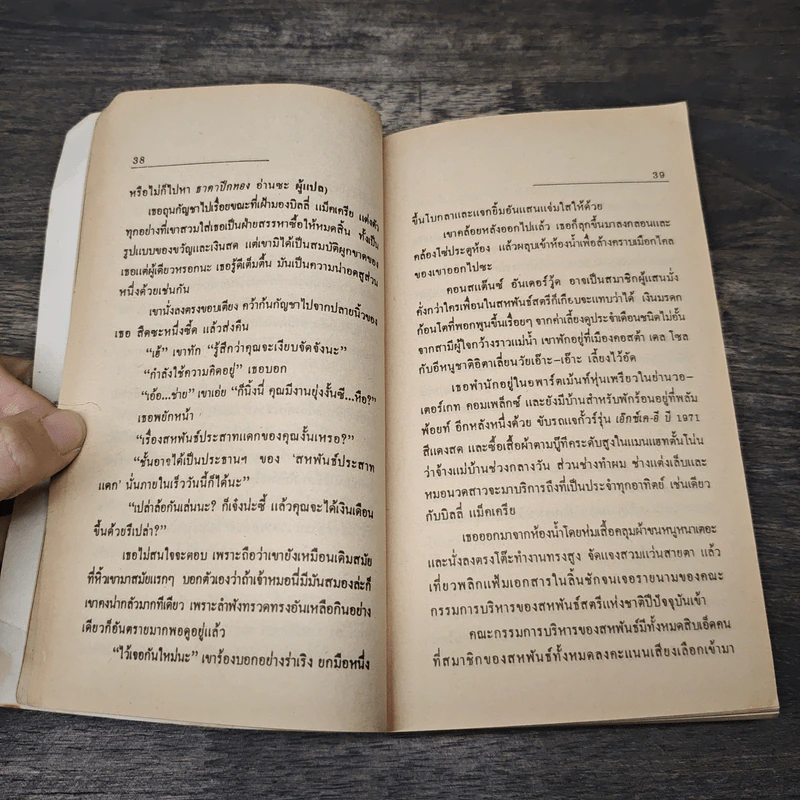 38
หรือไม่ก็ไปหา ธาดาปีกทอง อ่านซะ ผู้แปล)
เธอถุนกัญชาไปเรื่อยขณะที่เฝ้ามองบิลลี่ แม็คเครีย แต่งตัว
ทุกอย่างที่เขาสวมใส่เธอเป็นฝ่ายสรรหาซื้อให้หมดสิ้น ทั้งเป็น
รูปแบบของขวัญและเงินสด แต่เขามิได้เป็นสมบัติผูกขาดของ
เธอแต่ผู้เดียวหรอกนะ เธอรู้ดีเต็มตื้น มันเป็นความน่าอดสูส่วน
หนึ่งด้วยเช่นกัน
เขานั่งลงตรงขอบเตียง คว้าก้นกัญชาไปจากปลายนิ้วของ
เธอ สืดซะหนึ่งซี้ด แล้วส่งคืน
“เฮ้” เขาทัก “รู้สึกว่าคุณจะเงียบจัดจังนะ”
“กำลังใช้ความคิดอยู่” เธอบอก
“เอ้อ...ช่าย” เขาเอ่ย “ก็นิ้งนี่ คุณมีงานยุ่งงั้นซี...หือ?”
เธอพยักหน้า
“เรื่องสหพันธ์ประสาทแดกของคุณงั้นเหรอ?”
“ชั้นอาจได้เป็นประธานฯ ของ ‘สหพันธ์ประสาท
แดก’ นั่นภายในเร็ววันนี้ก็ได้นะ”
“เปล่าล้อกันเล่นนะ? ก็เจ๋งน่ะซี้ แล้วคุณจะได้เงินเดือน
ขึ้นด้วยรึเปล่า?”
เธอไม่สนใจจะตอบ เพราะถือว่าเขายังเหมือนเดิมสมัย
ที่หิ้วเขามาสมัยแรกๆ บอกตัวเองว่าถ้าเจ้าหมอนี่มีมันสมองล่ะก็
เขาคงน่ากลัวมากทีเดียว เพราะลำพังทรวดทรงอันเหลือกินอย่าง
เดียวก็อันตรายมากพอดูอยู่แล้ว
“ไว้เจอกันใหม่นะ” เขาร้องบอกอย่างร่าเริง ยกมือหนึ่ง
39
ขึ้นโบกลาและแจกยิ้มอันแสนแจ่มใสให้ด้วย
เขาคล้อยหลังออกไปแล้ว เธอก็ลุกขึ้นมาลงกลอนและ
คล้องโซ่ประตูห้อง แล้วผลุบเข้าห้องน้ำเพื่อล้างคราบเมือกไคล
ของเขาออกไปซะ
คอนสแต๊นซ์ อันเดอร์วู้ด อาจเป็นสมาชิกผู้แสนมั่ง
คั่งกว่าใครเพื่อนในสหพันธ์สตรีก็เกือบจะแทบว่าได้ เงินมรดก
ก้อนโตที่พอกพูนขึ้นเรื่อยๆ จากค่าเลี้ยงดูประจำเดือนชนิดไม่อั้น
จากสามีผู้ใจกว้างราวแม่น้ำ เขาพักอยู่ที่เมืองคอสต้า เดล โซล
กับอีหนูชาติอิตาเลี่ยนวัยเอ๊าะ-เอ๊าะ เลี้ยงไว้อัด
เธอพำนักอยู่ในอพาร์ตเม้นท์หุ่นเพรียวในย่านวอ-
เตอร์เกท คอมเพล็กซ์ และยังมีบ้านสำหรับพักร้อนอยู่ที่พลัม
พ้อยท์ อีกหลังหนึ่งด้วย ขับรถแจ็กกัวร์รุ่น เอ๊กซ์เค-อี ปี 1971
สีแดงสด และซื้อเสื้อผ้าตามบู๊ทีคระดับสูงในแมนแฮทตั้นโน่น
ว่าจ้างแม่บ้านช่วงกลางวัน ส่วนช่างทำผม ช่างแต่งเล็บและ
หมอนวดสาวจะมาบริการถึงที่เป็นประจำทุกอาทิตย์ เช่นเดียว
กับบิลลี่ แม็คเครีย
เธอออกมาจากห้องน้ำโดยห่มเสื้อคลุมผ้าขนหนูหนาเตอะ
และนั่งลงตรงโต๊ะทำงานทรงสูง จัดแจงสวมแว่นสายตา แล้ว
เที่ยวพลิกแฟ้มเอกสารในลิ้นชักจนเจอรายนามของคณะ
กรรมการบริหารของสหพันธ์สตรีแห่งชาติปีปัจจุบันเข้า
คณะกรรมการบริหารของสหพันธ์มีทั้งหมดสิบเอ็ดคน
ที่สมาชิกของสหพันธ์ทั้งหมดลงคะแนนเสียงเลือกเข้ามา